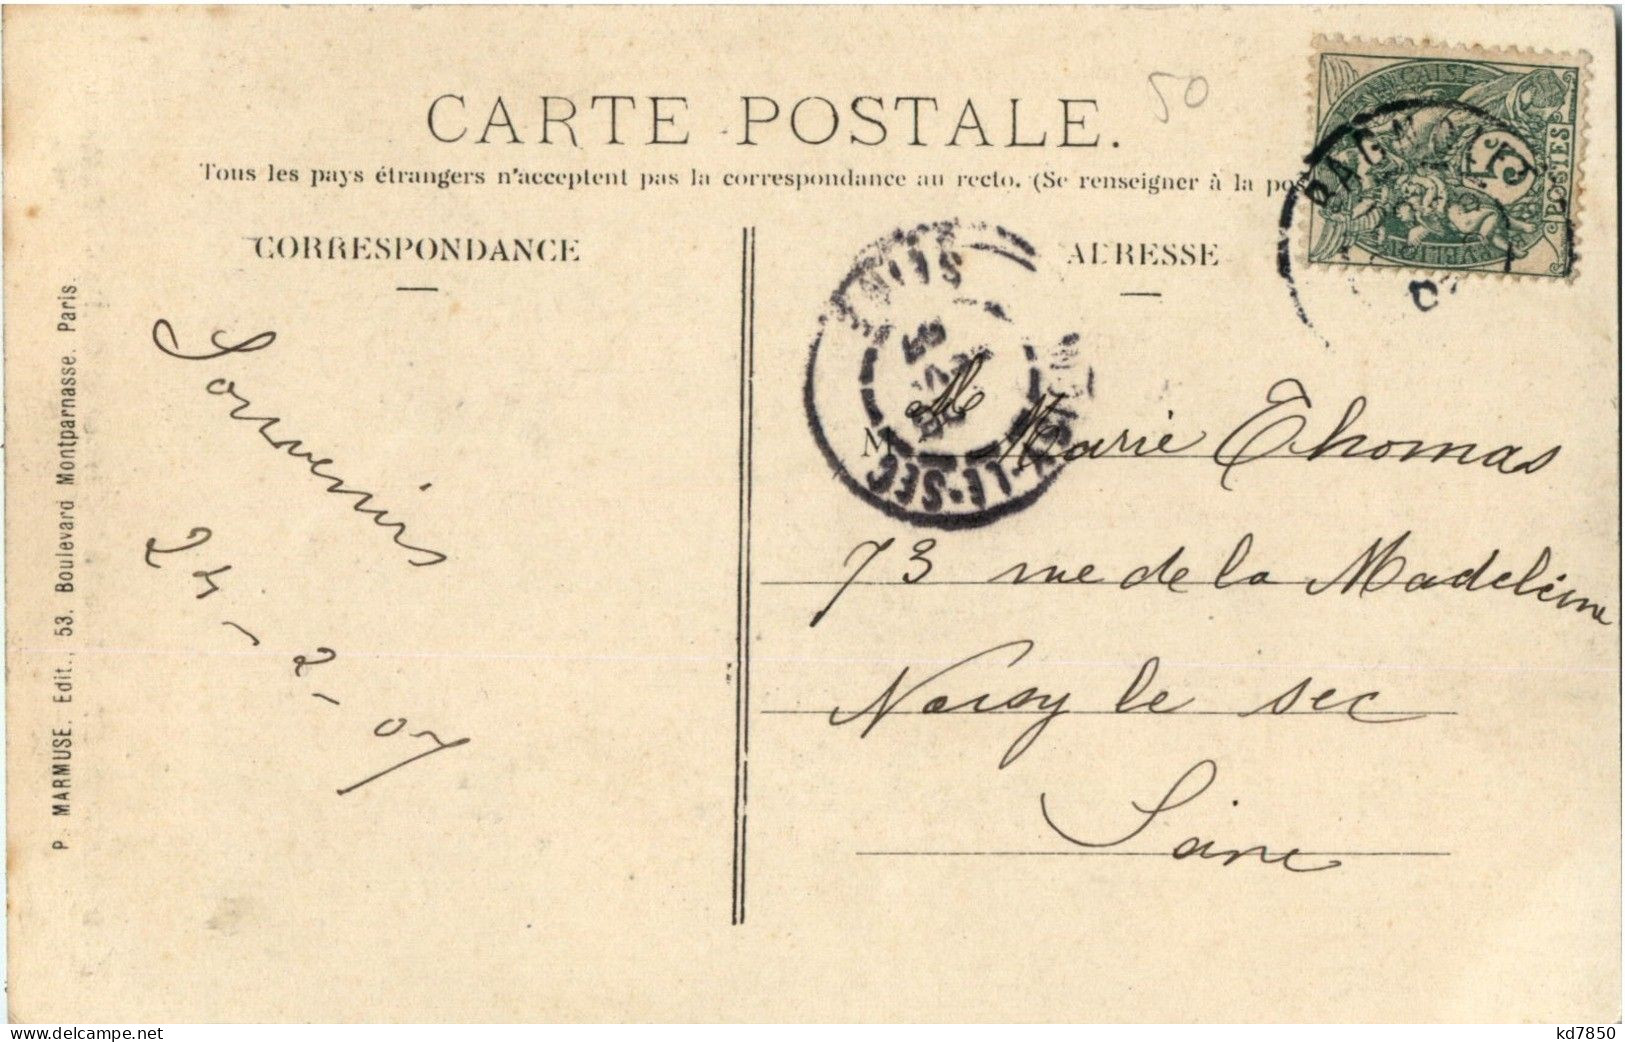 50
CARTE POSTALE.
Tous les pays étrangers n'acceptent pas la correspondance au recto. (Se renseigner à la pos
FRANÇAISE
5
POSTES
BAGNO
CORRESPONDANCE
ADRESSE
SEINE
LE-SEC
P. MARMUSE. Edit., 53. Boulevard Montparnasse. Paris.
Souvenirs
24-2-07
M Marie Thomas
73 rue de la Madeleine
Noisy le sec
Seine
www.delcampe.net
kd7850